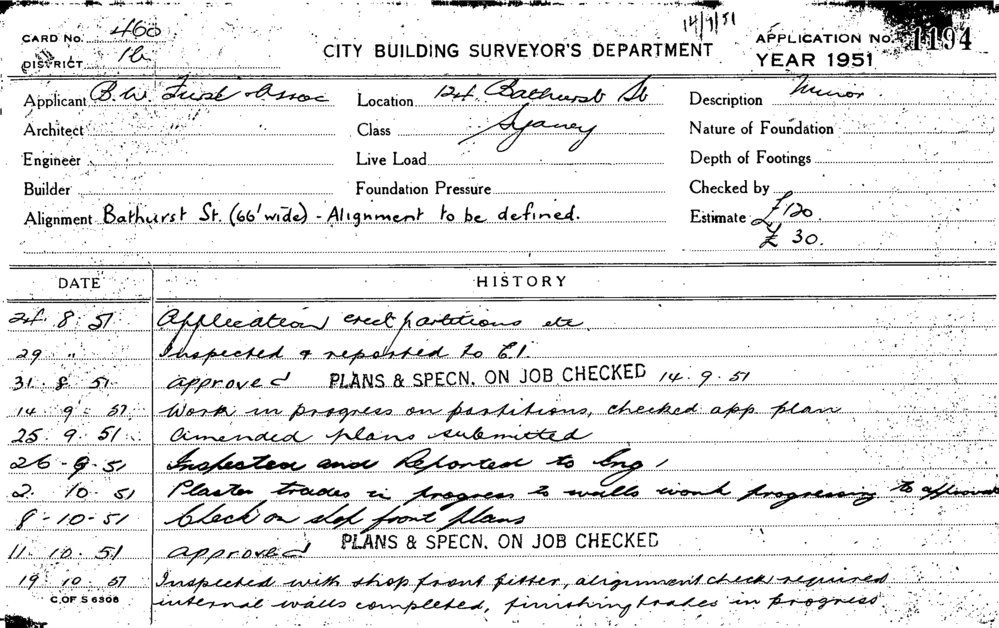 14/9/51
CARD No. 460
DISTRICT 1b
CITY BUILDING SURVEYOR'S DEPARTMENT
APPLICATION No. 1194
YEAR 1951
Applicant B.W. & Assoc
Location 124 Bathurst St
Description Minor
Architect
Class Sydney
Nature of Foundation
Engineer
Live Load
Depth of Footings
Builder
Foundation Pressure
Checked by
Alignment Bathurst St. (66' wide) - Alignment to be defined.
Estimate £120
£ 30.
DATE HISTORY
24. 8. 51 Application erect partitions etc
29 " Inspected & reported to E.I.
31. 8. 51. approved PLANS & SPECN. ON JOB CHECKED 14.9.51
14. 9. 51 Work in progress on partitions, checked app plan
25. 9. 51. amended plans submitted
26-9-51 Inspected and Reported to Eng
2. 10. 51 Plaster trades in progress to walls work progressing to approval
8-10-51 Check on shop front plans
11. 10. 51 approved PLANS & SPECN. ON JOB CHECKED
19 10. 51 Inspected with shop front fitter, alignment check required
C. OF S 6306 internal walls completed, finishing trades in progress